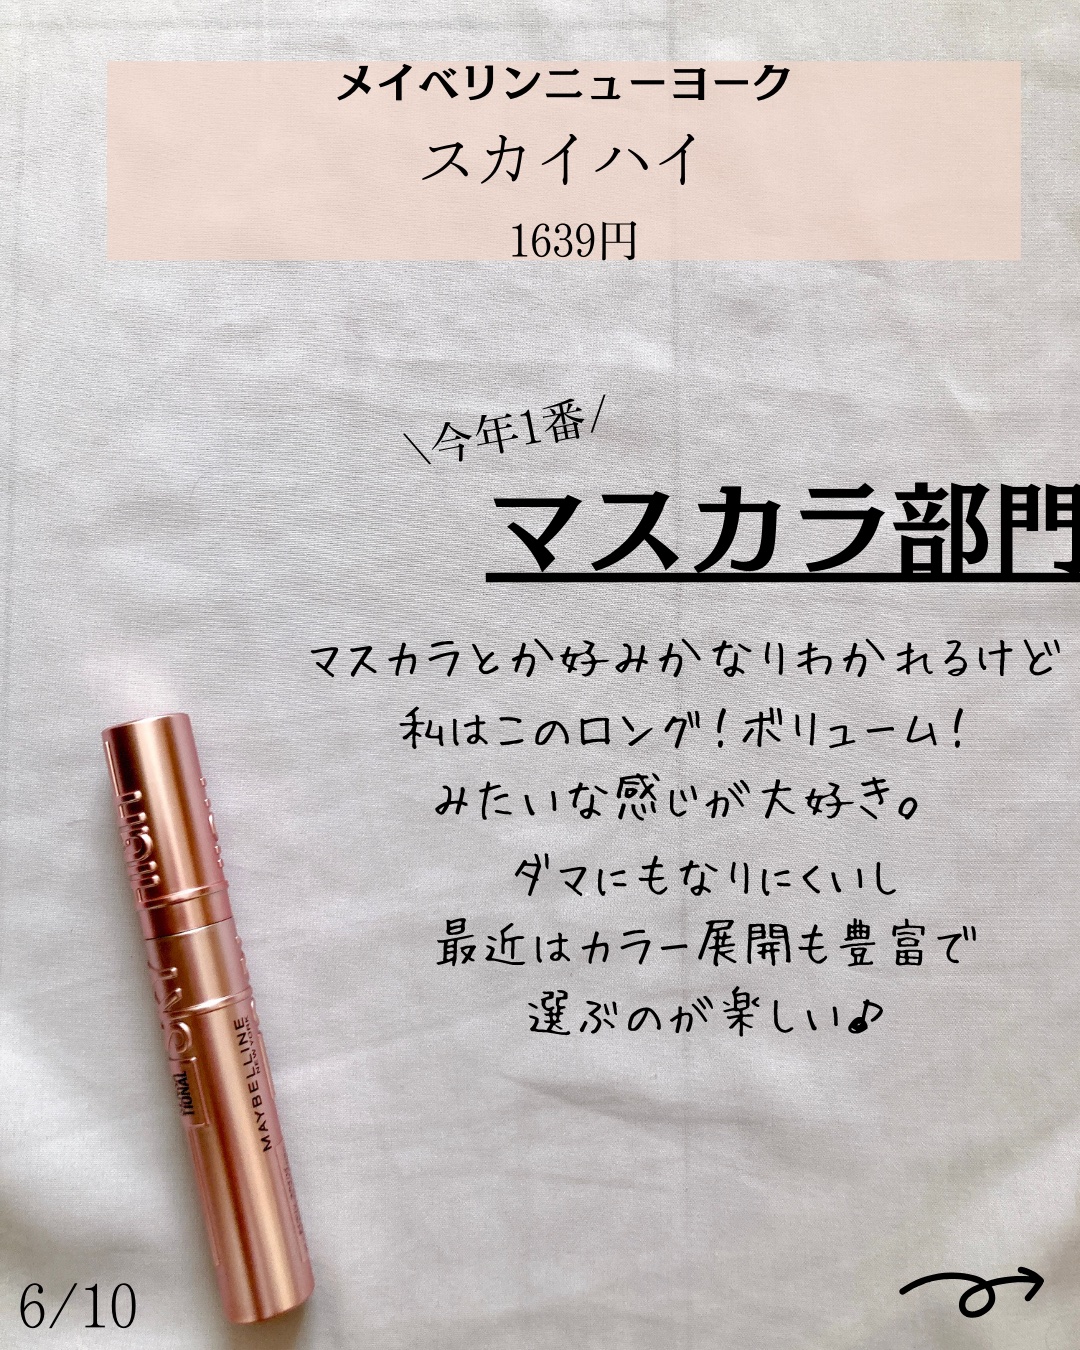 メイベリンニューヨーク
スカイハイ
1639円
\今年1番/
マスカラ部門
マスカラとか好みかなりわかれるけど
私はこのロング！ボリューム！
みたいな感じが大好き。
ダマにもなりにくいし
最近はカラー展開も豊富で
選ぶのが楽しい♪
HIGH
SKY
TIONAL
MAYBELLINE
NEW YORK
6/10